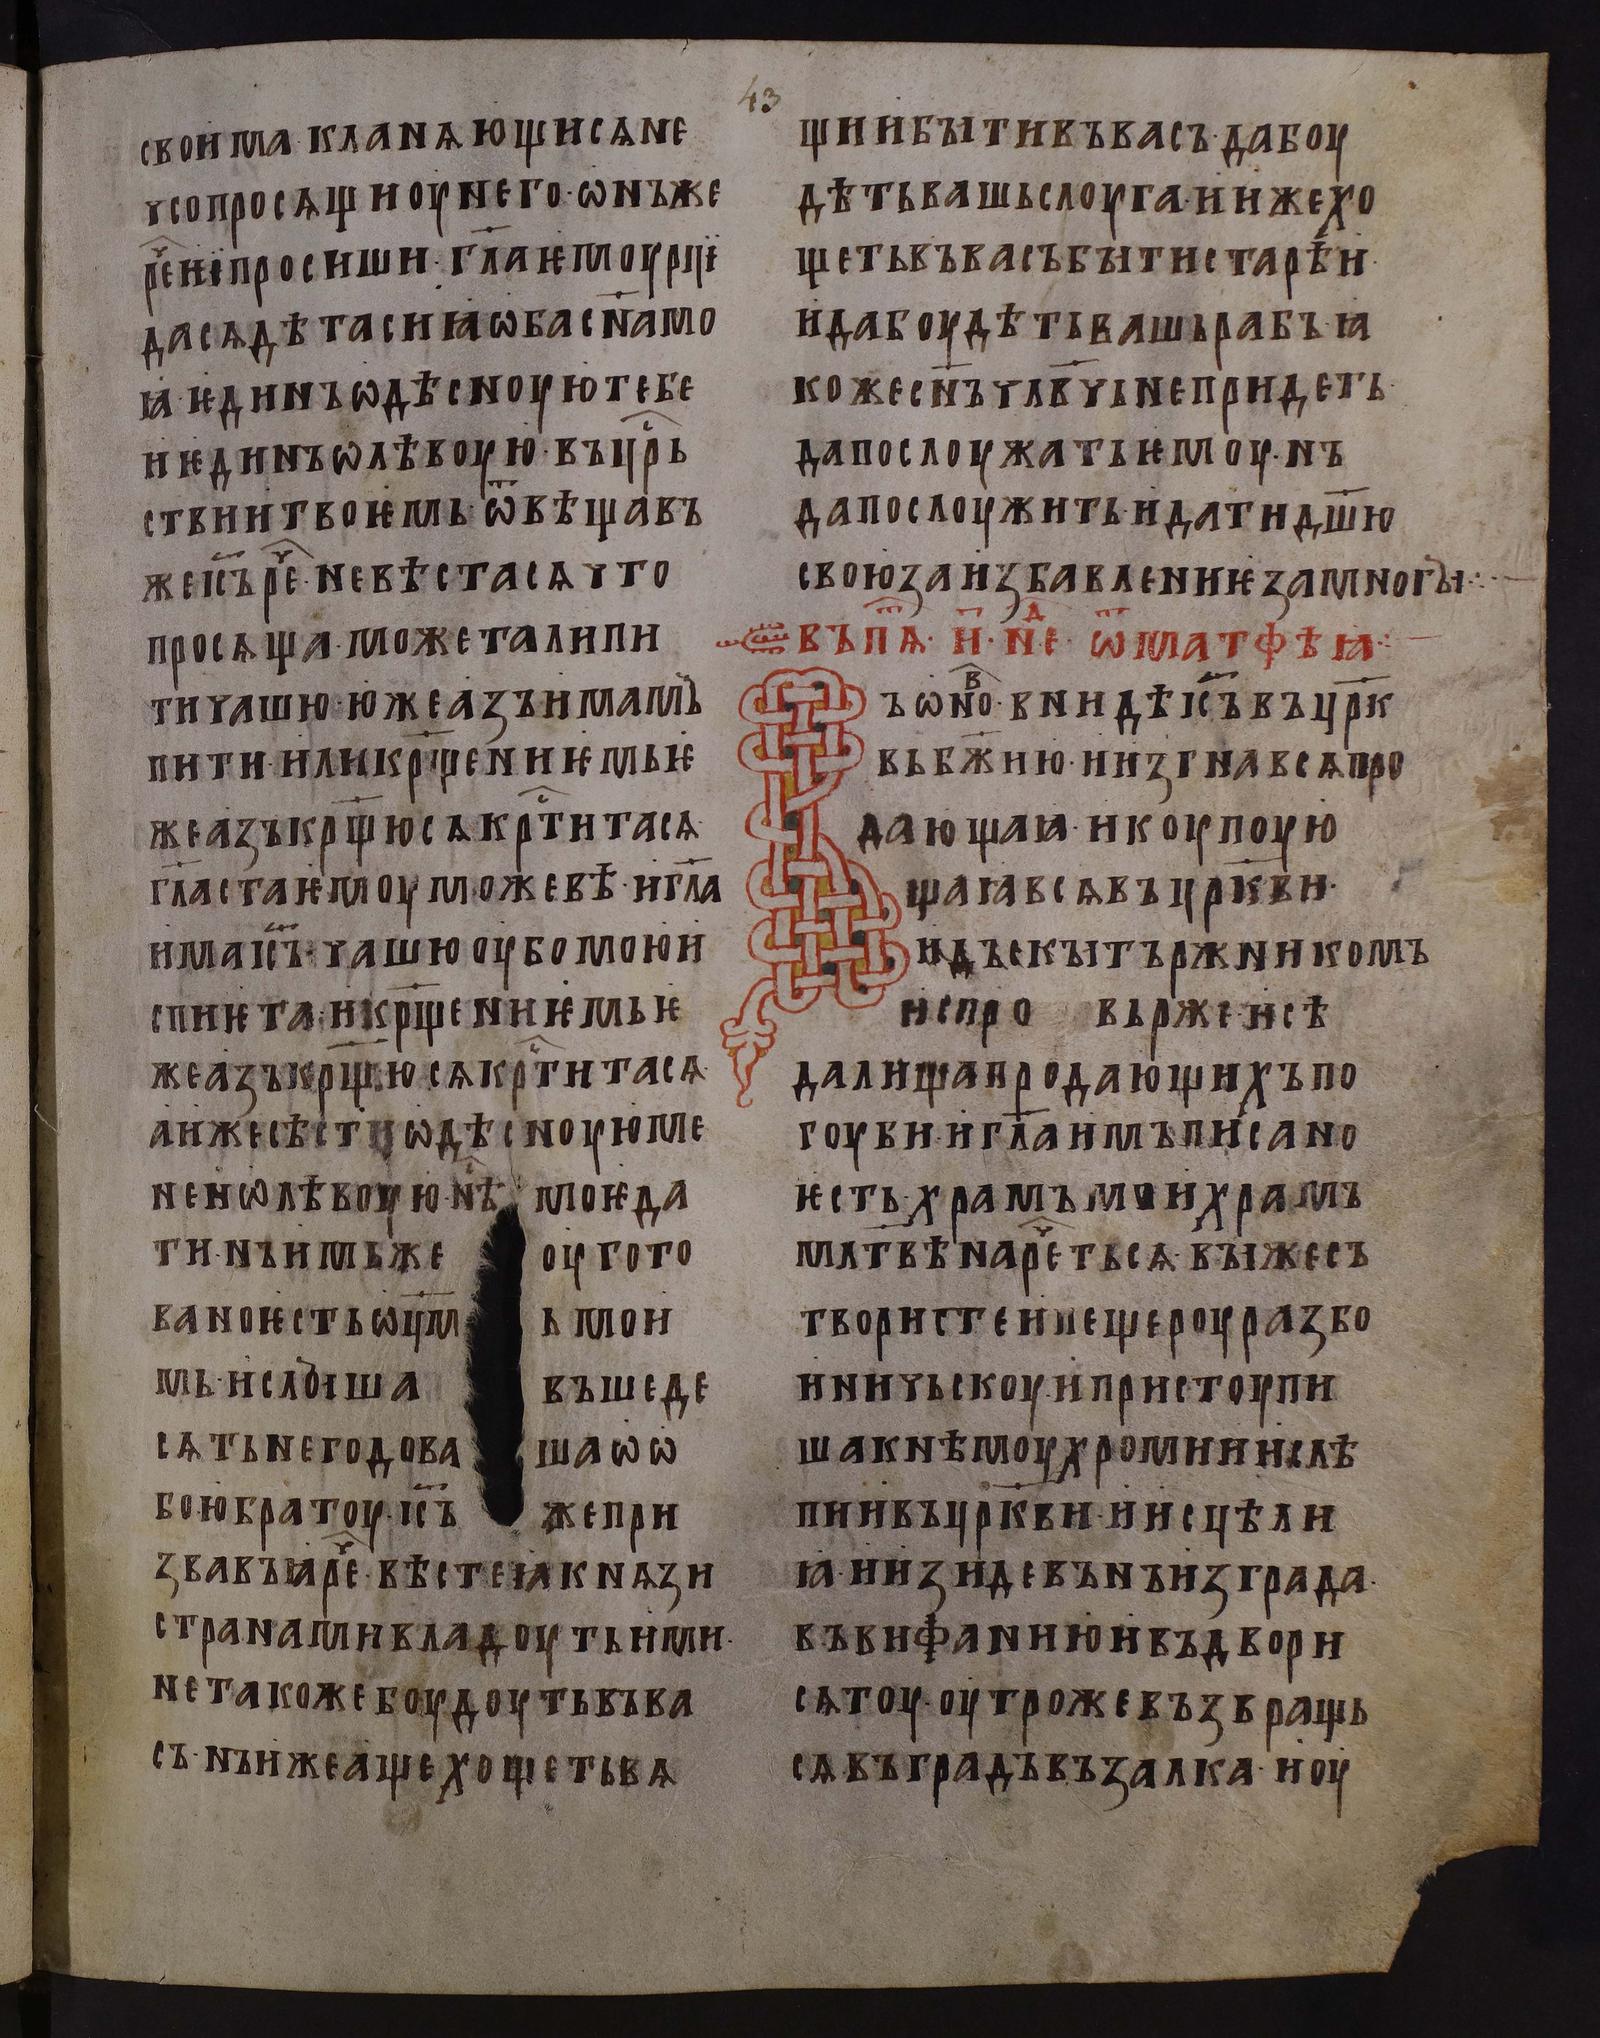 43
своима · кланѧющисѧ не
чсопросѧщи оу него · ѡнъже
рⷱ҇е ні просиши · гл҃а ѥмоу рци
да сѧдѣта си ꙗ ѡба сн҃а мо
ꙗ · ѥдинъ ѡдѣсноую тебе
и ѥдинъ ѡлѣвоую · въ цр҇ь
ствии твоѥмь · ѿвѣщавъ
же іс҃ъ рⷱ҇е · не вѣстасѧ что
просѧща · можета ли пи
ти чашю · юже азъ имамъ
пити · или кр҃щениѥмь ѥ
же азъ кр҃щюсѧ кр҇титасѧ ·
гл҃аста ѥмоу можевѣ · и гл҃а
има іс҃ъ · чашю оубо мою и
спиѥта · и кр҃щениѥмь ѥ
же азъ кр҃щюсѧ кр҇титасѧ ·
а иже сѣсти ѡдѣсноую ме
не и ѡлѣвоую нⷭ҇ѣ моѥ да
ти · нъ имъже оугото
вано ѥсть ѡц҃мь мои
мь · и слъіша въше де
сѧть негодова ша ѡ ѡ
бою братоу · іс҃ъ же при
звавъ ꙗ рⷱ҇е · вѣсте ꙗ кнѧзи
странами владоуть ими ·
не такоже боудоуть въ ва
съ · нъ иже аще хощеть вѧ
щии бъіти въ васъ · да боу
дѣть вашь слоуга · и иже хо
щеть въ васъ бъіти старѣи ·
и да боудѣть вашь рабъ · ꙗ
коже сн҃ъ чл҃вчь не придеть ·
да послоужать ѥмоу · нъ
да послоужить · и дати дш҃ю
свою за избавлениѥ за многъі ·:·
въ пѧ · н҃ · не ⷣ · ѿ матфѣꙗ ·:·
ъ ѡноⷡ · вниде іс҃ъ въ цр҃к
вь бж҃ию · и изгна всѧ про
дающаꙗ · и коупоую
щаꙗ всѧ въ цр҃кви ·
и дъскъі тържникомъ
испро вьрже · и сѣ
далища продающихъ по
гоуби · и гл҃а имъ писано
ѥсть · храмъ мои храмъ
мл҃твѣ нарⷱ҇етьсѧ · въі же съ
твористе и пещероу разбо
иничьскоу · и пристоупи
ша к нѣмоу хромии и слѣ
пии въ цр҃кви · и исцѣли
ꙗ · и изиде вънъ из града ·
въ вифанию и въдвори
сѧ тоу · оутроже възвращь
сѧ въ градъ възалка · и оу